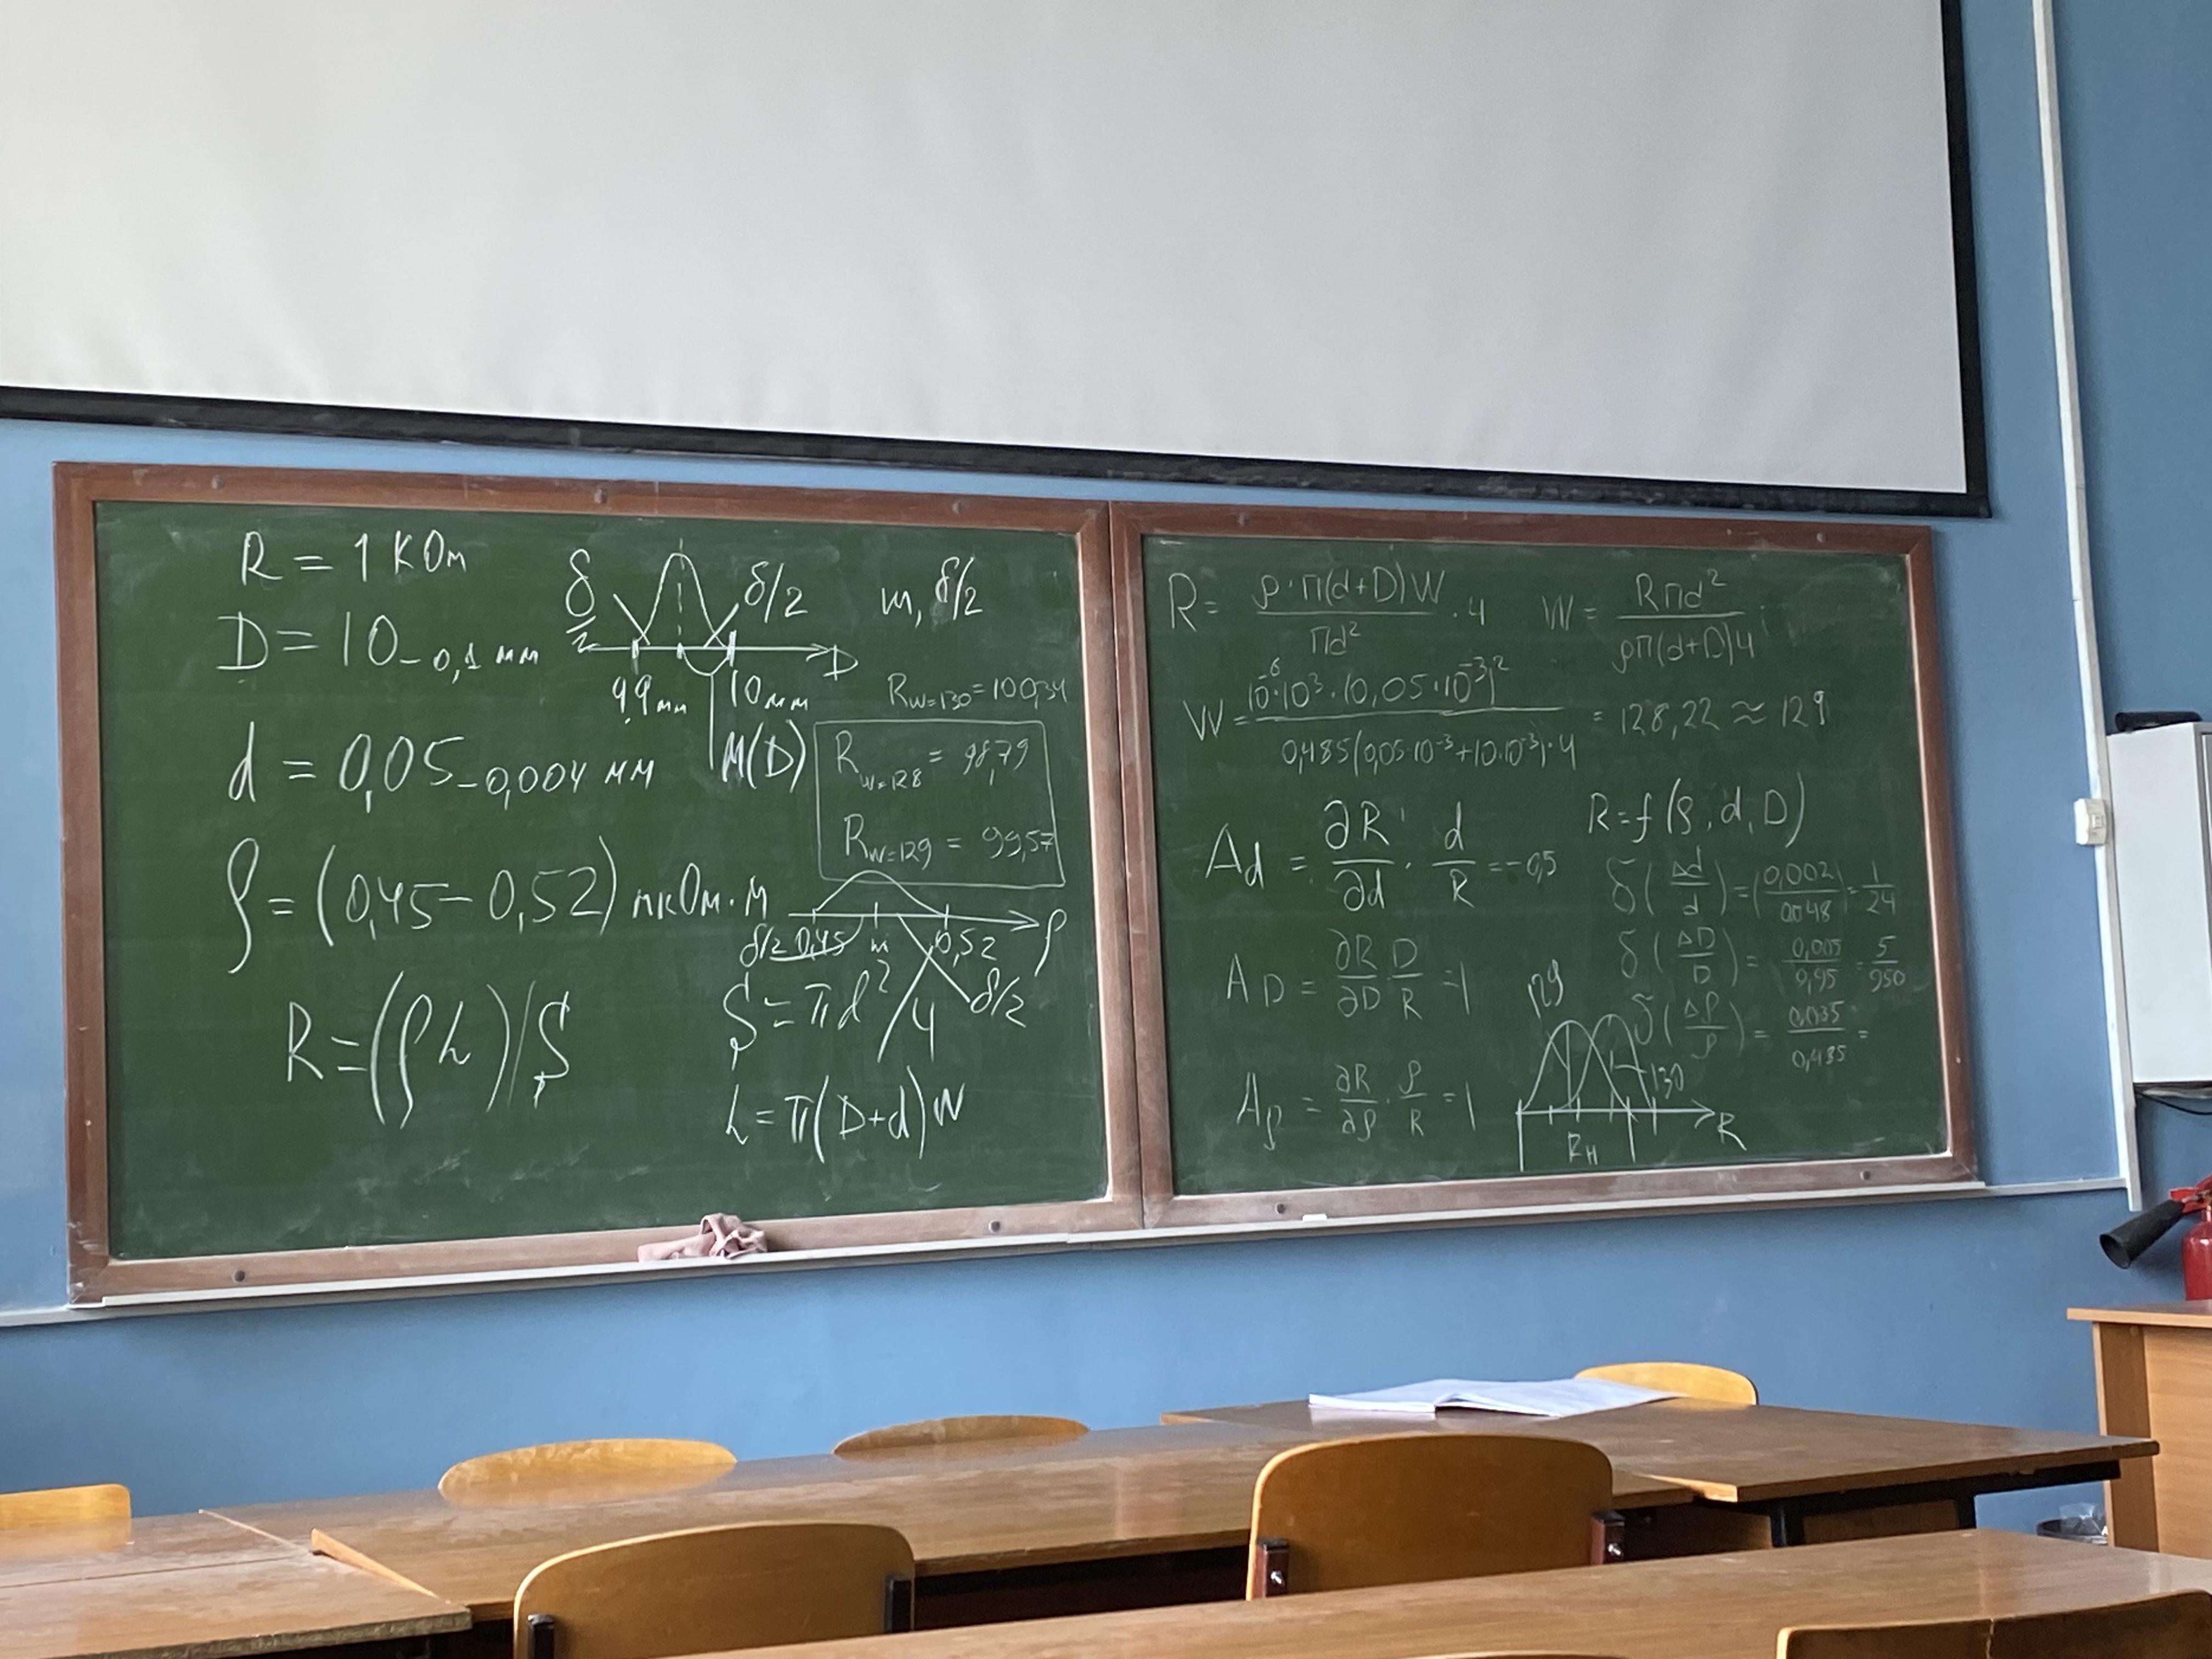 R = 1 кОм
D = 10 -0,1 мм
d = 0,05 -0,004 мм
ρ = (0,45 - 0,52) мкОм·м
R = (ρL)/S
δ/2
δ/2
D
9,9 мм
10 мм
M(D)
m, δ/2
R W=130 = 100,34
R W=128 = 98,79
R W=129 = 99,57
δ/2 0,45 m 0,52 ρ
δ/2
S = πd²/4
L = π(D+d)W
R = ρ·П(d+D)W / Пd² · 4
W = RПd² / ρП(d+D)4 ;
W = 10⁻⁶·10³·(0,05·10⁻³)² / 0,485(0,05·10⁻³+10·10⁻³)·4 = 128,22 ≈ 129
A d = ∂R/∂d · d/R = -0,5
A D = ∂R/∂D D/R = 1
A ρ = ∂R/∂ρ · ρ/R = 1
R = f(ρ, d, D)
δ(Δd/d) = (0,002/0,048) = 1/24
δ(ΔD/D) = 0,005/9,95 = 5/950
δ(Δρ/ρ) = 0,035/0,485 =
129
130
R
R н